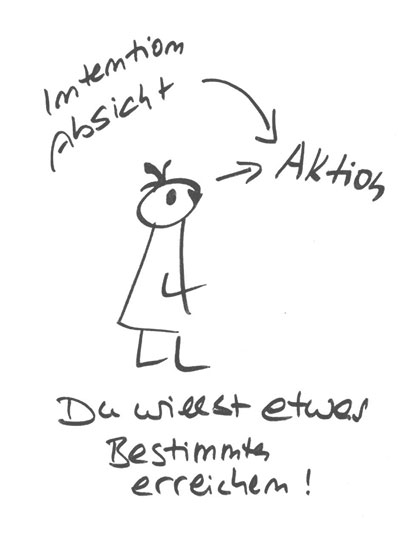 Intention
Absicht
Aktion
Du willst etwas
Bestimmtes
erreichen!